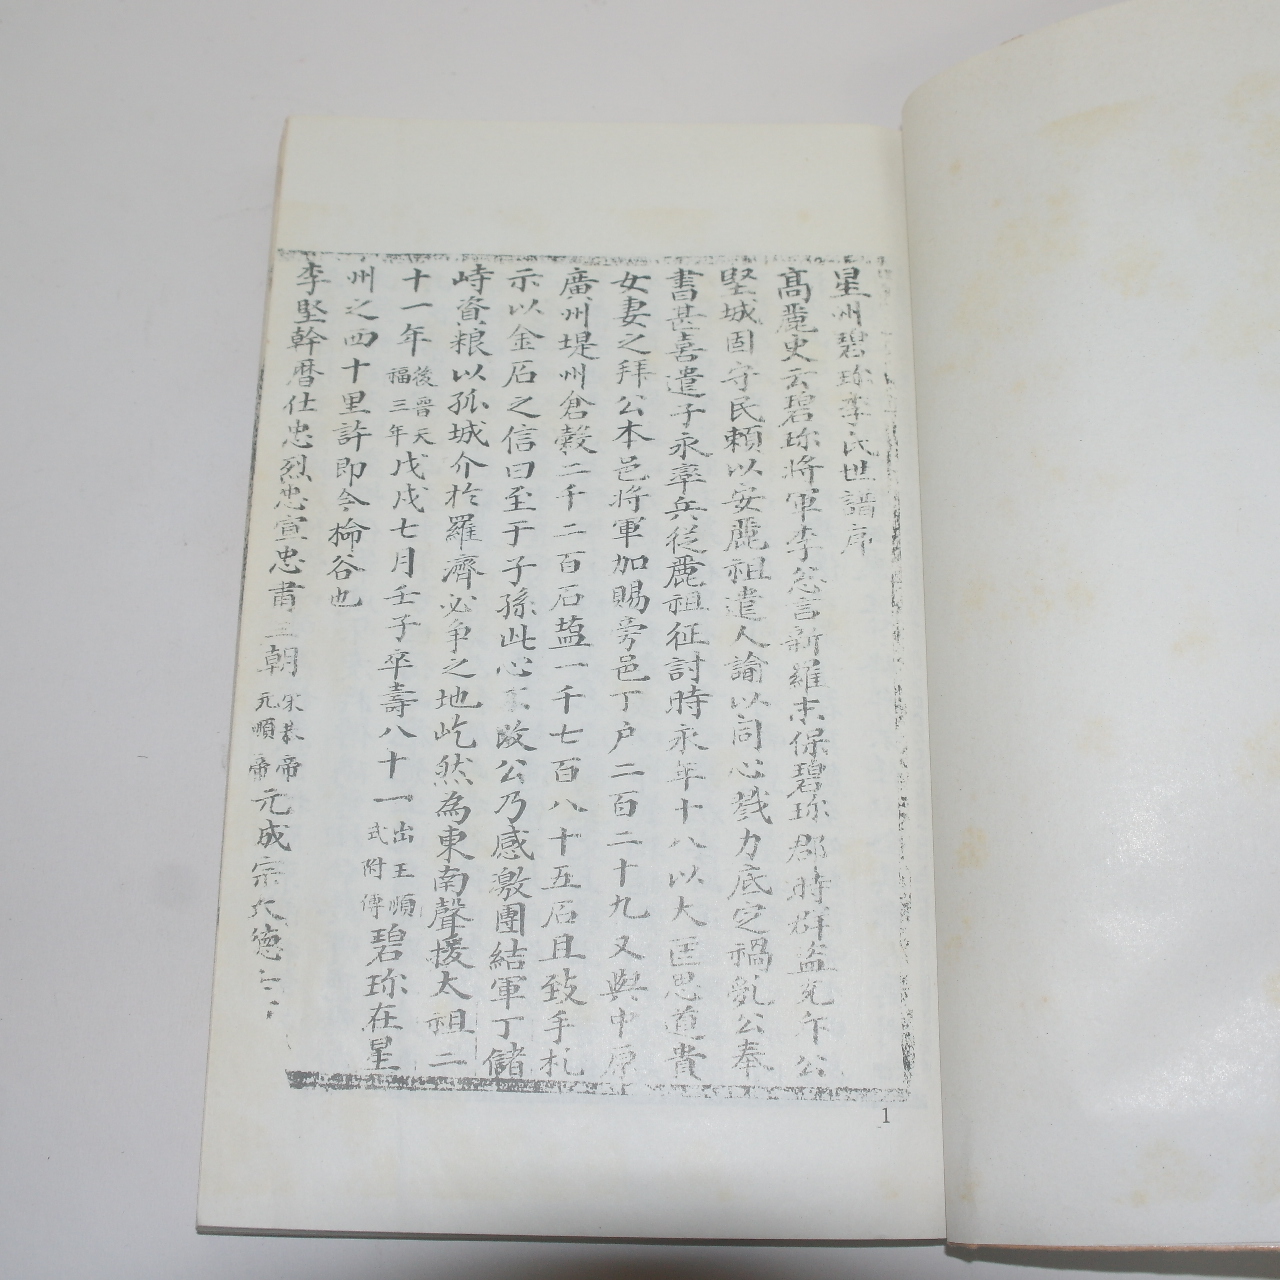 星州碧珍李氏世譜序
高麗史云碧珍將軍李忩言新羅末保碧珍郡時群盜充斥公
堅城固守民賴以安麗祖遣人諭以同心戮力底定禍亂公奉
書甚喜遣子永率兵從麗祖征討時永年十八以大匡思道貴
女妻之拜公本邑將軍加賜旁邑丁户二百二十九又與中原
廣州堤州倉穀二千二百石塩一千七百八十五石且致手札
示以金石之信曰至于子孫此心不改公乃感激團結軍丁儲
峙資粮以孤城介於羅濟必争之地屹然為東南聲援太祖二
十一年後晉天福三年戊戌七月壬子卒壽八十一出王順式附傳碧珍在星
州之西十里許即今柳谷也
李堅幹曆仕忠烈忠宣忠肅三朝宋恭帝元順帝元成宗大德
1